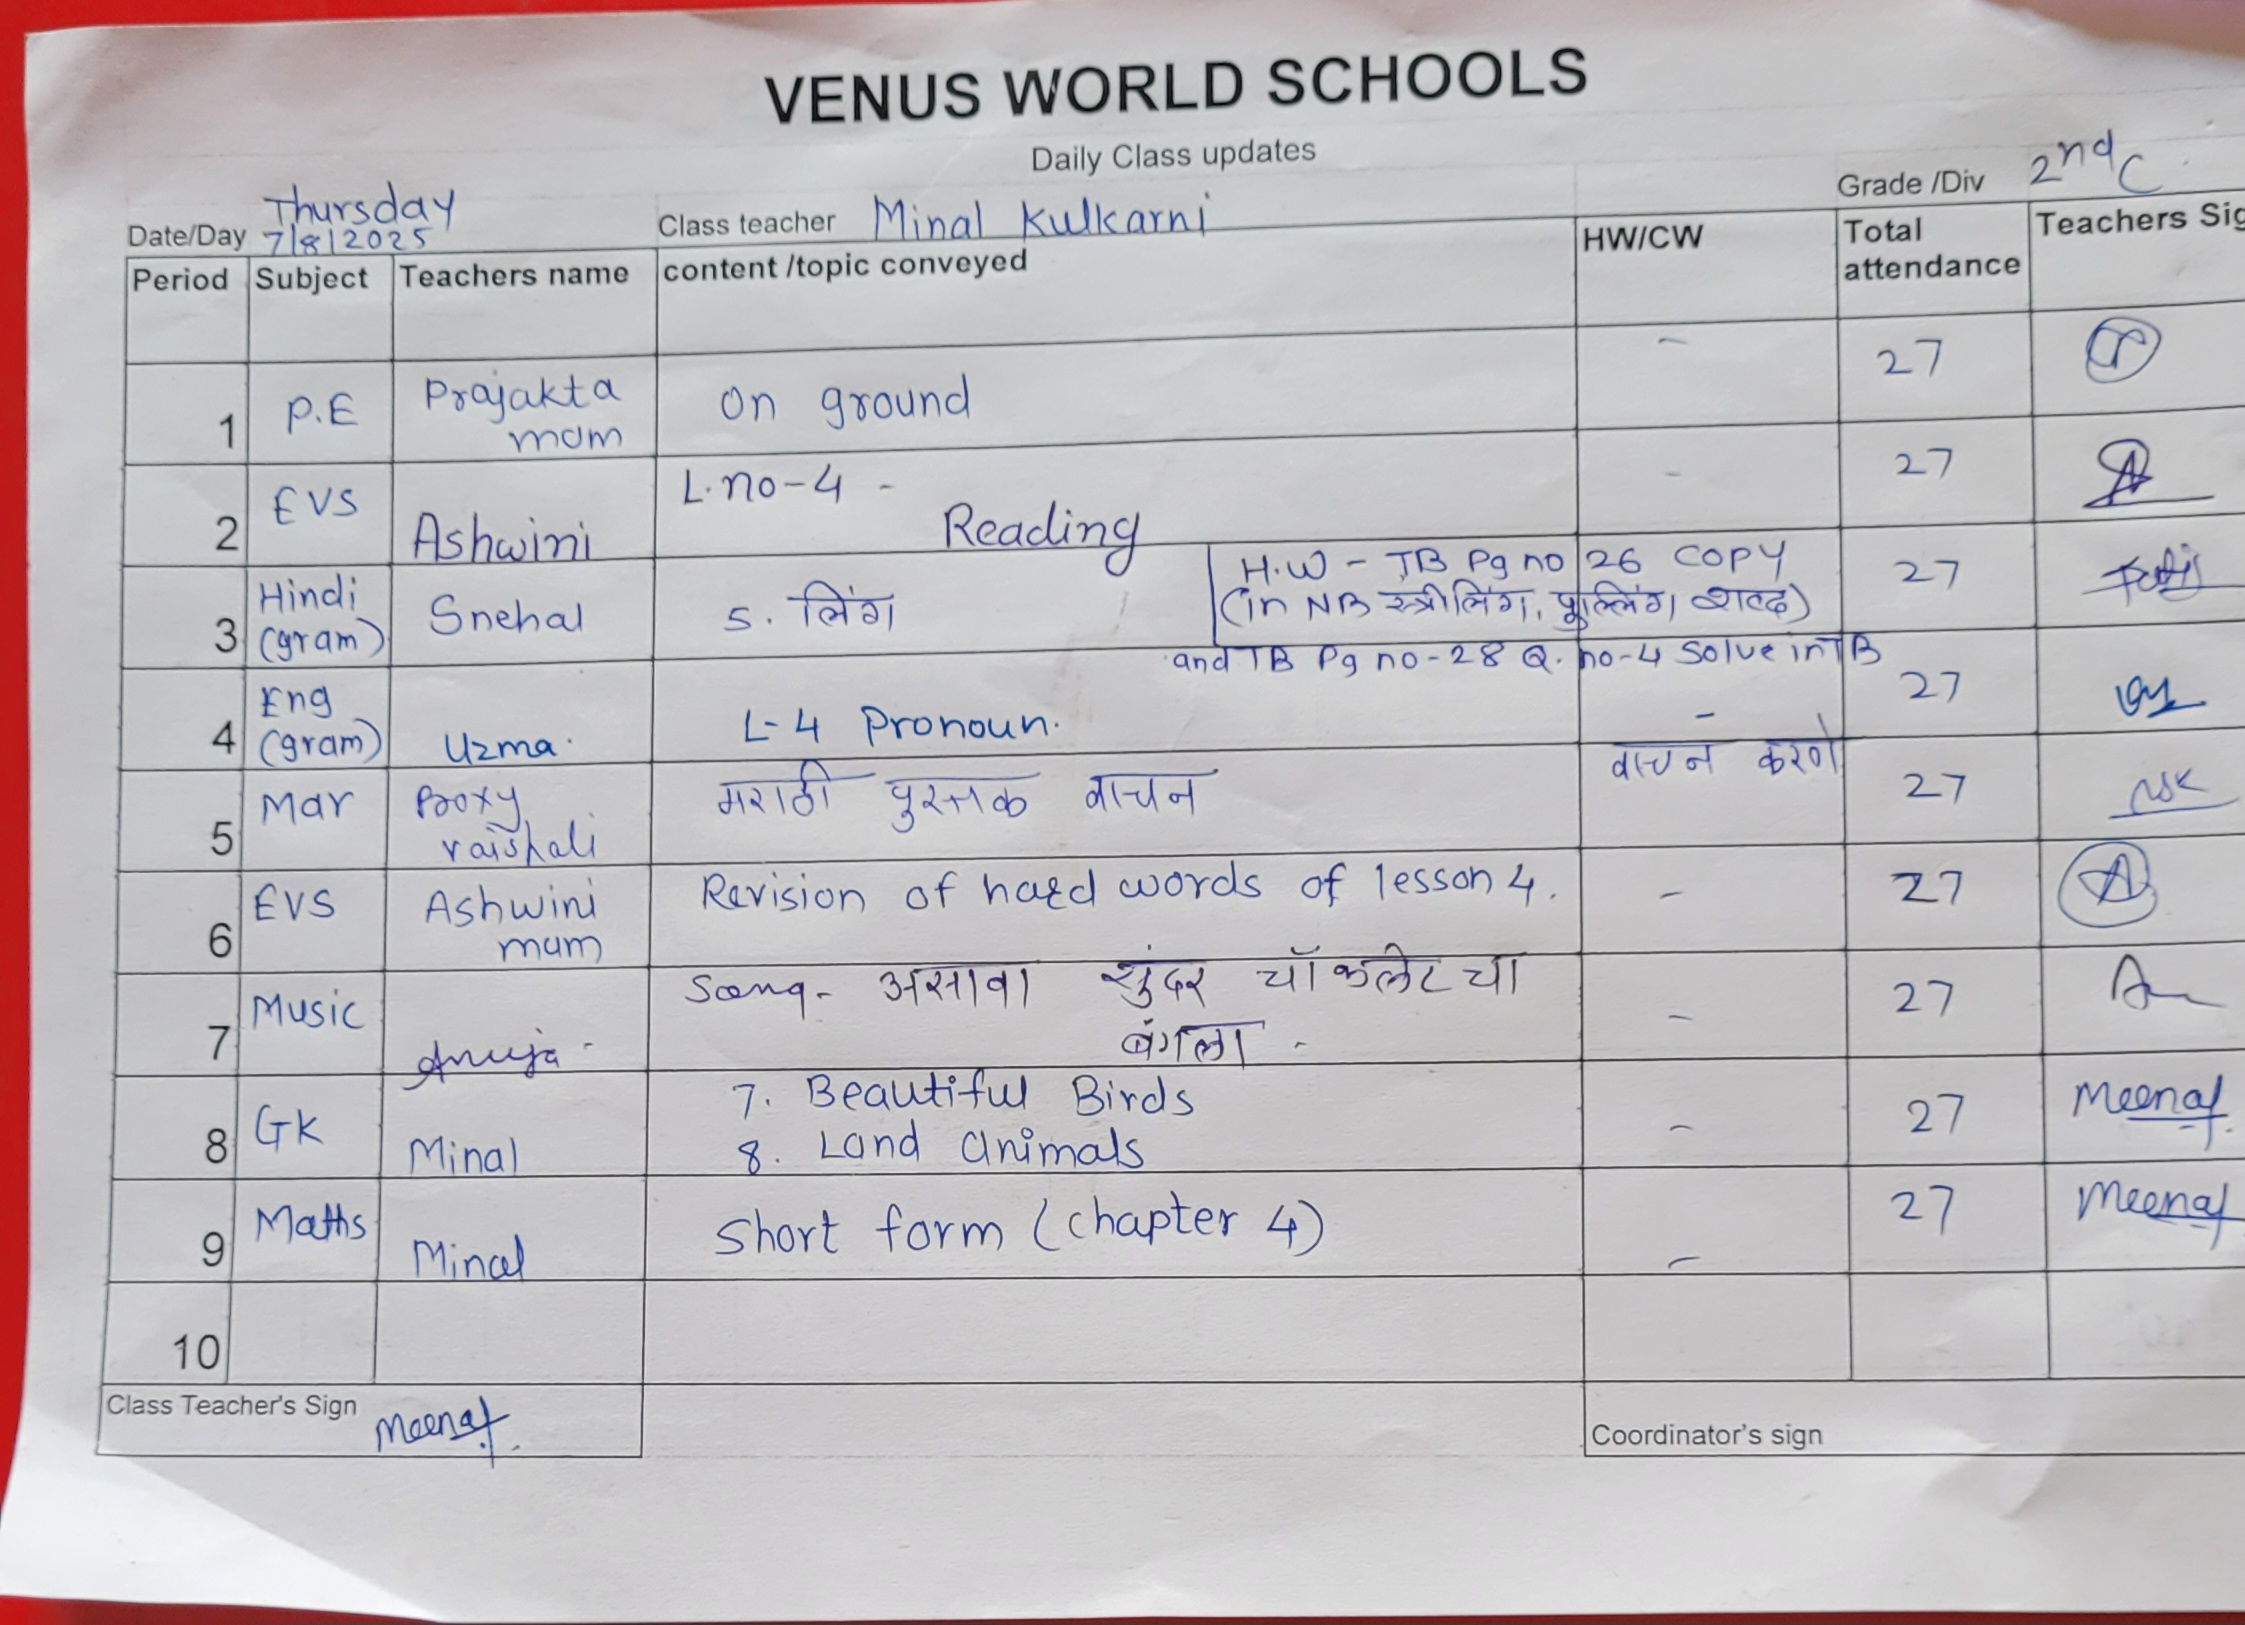 VENUS WORLD SCHOOLS
Daily Class updates
Date/Day Thursday 7/8/2025 Class teacher Minal Kulkarni Grade /Div 2nd C
Period Subject Teachers name content /topic conveyed HW/CW Total attendance Teachers Sig
1 P.E Prajakta mam On ground - 27
2 EVS Ashwini L.no-4 - Reading - 27
3 Hindi (gram) Snehal 5. लिंग H.W - TB Pg no 26 COPY 27
(in NB स्त्रीलिंग, पुल्लिंग शब्द)
and TB Pg no-28 Q. no-4 Solve in TB
4 Eng (gram) Uzma. L-4 Pronoun. - 27
5 Mar Proxy vaishali मराठी पुस्तक वाचन वाचन करणे 27 NSK
6 EVS Ashwini mam Revision of hard words of lesson 4. - 27 A
7 Music Anuja - Song - असावा सुंदर चॉकलेट चा - 27
बंगला -
8 GK Minal 7. Beautiful Birds - 27 Meenal
8. Land animals
9 Maths Minal Short form (chapter 4) - 27 Meenal
10
Class Teacher's Sign Meenal
Coordinator's sign